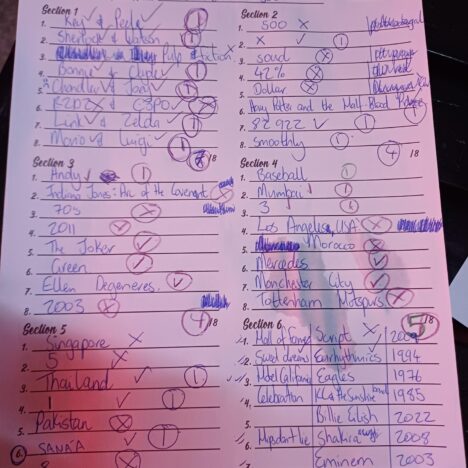 Section 1
1. Key & Peele
2. Sherlock & Watson
3. Pulp fiction
4. Bonnie & Clyde
5. Chandler & Joey
6. R2D2 & C3PO
7. Link & Zelda
8. Mario & Luigi
7/8
Section 2
1. 500
2. x
3. squid
4. 42%
5. Dollar
6. Harry Potter and the Half-Blood Prince
7. 82 922
8. smoothly
4/8
Section 3
1. Andy
2. Indiana Jones: Arc of the Covenant
3. 70s
4. 2011
5. The Joker
6. Green
7. Ellen Degeneres
8. 2003
4/8
Section 4
1. Baseball
2. Mumbai
3. 3
4. Los Angelise, USA
5. Morocco
6. Mercedes
7. Manchester City
8. Tottenham Hotspurs
5/8
Section 5
1. Singapore
2. 5
3. Thailand
4. 1
5. Pakistan
6. SANA'A
Section 6
1. Hall of fame Script 2009
2. Sweet dreams Eurythmics 1994
3. Hotel California Eagles 1976
4. Celebration KC & the Sunshine band 1985
Billie Eilish 2022
Hips don't lie Shakira 2008
7. Eminem 2003